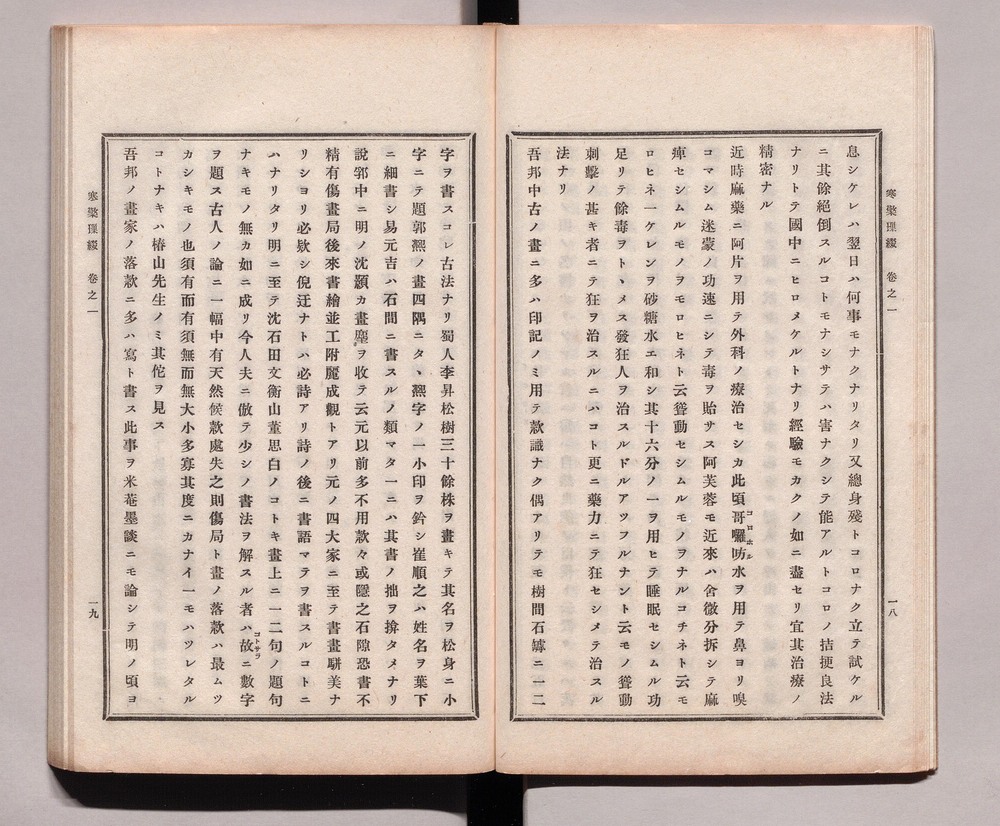 寒檠璅綴　卷之一
一八
息シケレハ翌日ハ何事モナクナリタリ又總身殘トコロナク立テ試ケル
ニ其餘絕倒スルコトモナシサテハ害ナクシテ能アルトコロノ桔梗良法
ナリトテ國中ニヒロメケルトナリ經驗モカクノ如ニ盡セリ宜其治療ノ
精密ナル
近時麻藥ニ阿片ヲ用テ外科ノ療治セシカ此頃哥囉叻水ヲ用テ鼻ヨリ嗅
コロホル
コマシム迷蒙ノ功速ニシテ毒ヲ貽サス阿芙蓉モ近來ハ舍微分拆シテ麻
痺セシムルモノヲモロヒネト云聳動セシムルモノヲナルコチネト云モ
ロヒネ一ケレンヲ砂糖水エ和シ其十六分ノ一ヲ用ヒテ睡眠セシムル功
足リテ餘毒ヲトヽメス發狂人ヲ治スルドルアツフルナント云モノ聳動
刺擊ノ甚キ者ニテ狂ヲ治スルニハコト更ニ藥力ニテ狂セシメテ治スル
法ナリ
吾邦中古ノ畫ニ多ハ印記ノミ用テ款識ナク偶アリテモ樹間石罅ニ一二
字ヲ書スコレ古法ナリ蜀人李昇松樹三十餘株ヲ畫キテ其名ヲ松身ニ小
字ニテ題郭熙ノ畫四隅ニタヽ熙字ノ一小印ヲ鈐シ崔順之ハ姓名ヲ葉下
ニ細書シ易元吉ハ石間ニ書スルノ類マタ一ニハ其書ノ拙ヲ揜タメナリ
說郛中ニ明ノ沈顥カ畫塵ヲ收テ云元以前多不用款々或隱之石隙恐書不
精有傷畫局後來書繪並工附麗成觀トアリ元ノ四大家ニ至テ書畫駢美ナ
リショリ必欵シ倪迂ナトハ必詩アリ詩ノ後ニ書語マテヲ書スルコトニ
ハナリタリ明ニ至テ沈石田文衡山董思白ノコトキ畫上ニ一二句ノ題句
ナキモノ無カ如ニ成リ今人夫ニ倣テ少シノ書法ヲ解スル者ハ故ニ數字
コトサラ
ヲ題ス古人ノ論ニ一幅中有天然候款處失之則傷局ト畫ノ落款ハ最ムツ
カシキモノ也須有而有須無而無大小多寡其度ニカナイ一モハツレタル
コトナキハ椿山先生ノミ其佗ヲ見ス
吾邦ノ畫家ノ落款ニ多ハ寫ト書ス此事ヲ米菴墨談ニモ論シテ明ノ頃ヨ
寒檠璅綴　卷之一
一九